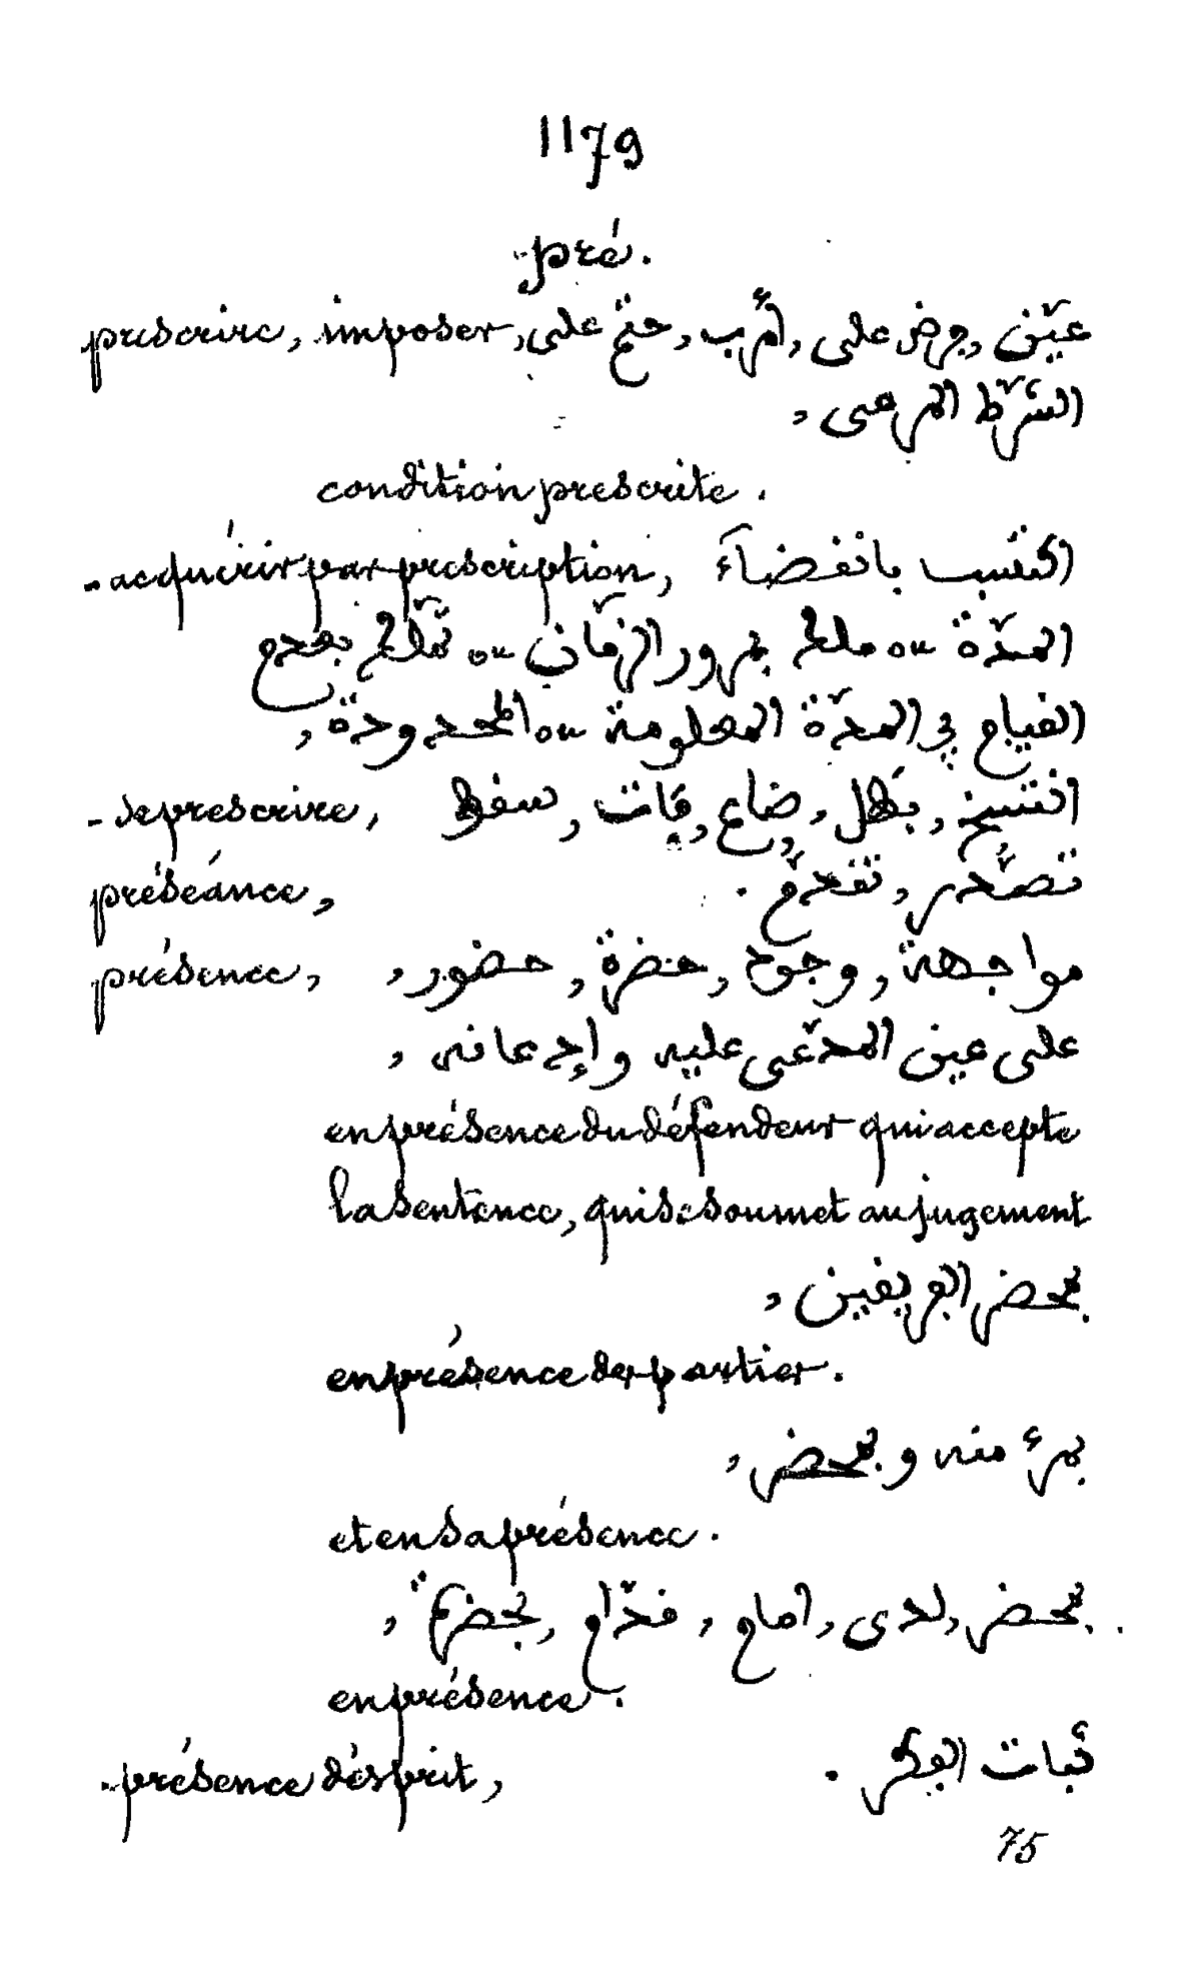 1179
pré.
prescrire, imposer, عيّن, فرض على, أمر ب, حتّم على
الشرط المرعى,
condition prescrite.
- acquérir par prescription, اكتسب بانقضاء
المدّة ou ملك بمرور الزمان ou تملّك بعدم
القيام في المدّة المعلومة ou المحدودة,
- se prescrire, انتسخ, بطل, ضاع, فات, سقط
préséance, تصدّر, تقدّم.
présence, مواجهة, وجود, حضرة, حضور,
على عين المدّعى عليه وإدعانه,
en présence du défendeur qui accepte
la sentence, qui se soumet au jugement
بمحضر الفريقين,
en présence des parties.
برئ منه وبمحضر,
et en sa présence.
بمحضر, لدى, امام, قدّام, بحضرة,
en présence.
- présence d'esprit, ثبات الفكر.
75